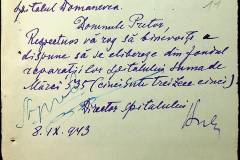 11
Spitalul Domanevca.
Domnule Pretor,
Respectuos vă rog să binevoiți a
dispune să se elibereze din fondul
reparațiilor spitalului suma de
Mărci 535 (cinci sute treizeci cinci).
Director spitalului
8.IX.943